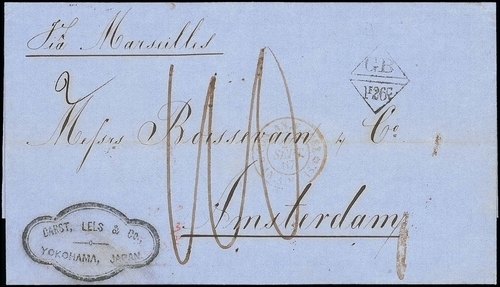 Via Marseilles
GB
1F 26c
2
Messrs Boissevain & Co
100
Amsterdam
PABST, LELS & CO,
YOKOHAMA, JAPAN
1